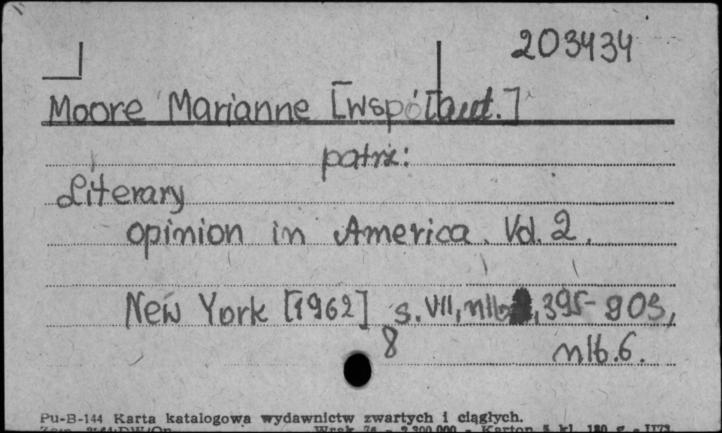 203434
Moore Marianne [współaut.]
patrz:
Literary
opinion in America. Vol. 2.
New York [1962] s. VII, nlb, 395-903,
8 nlb. 6.
Pu-B-144 Karta katalogowa wydawnictw zwartych i ciągłych.
Wrak 76 - 2.300.000 - Karton 5 kl. 180 g -